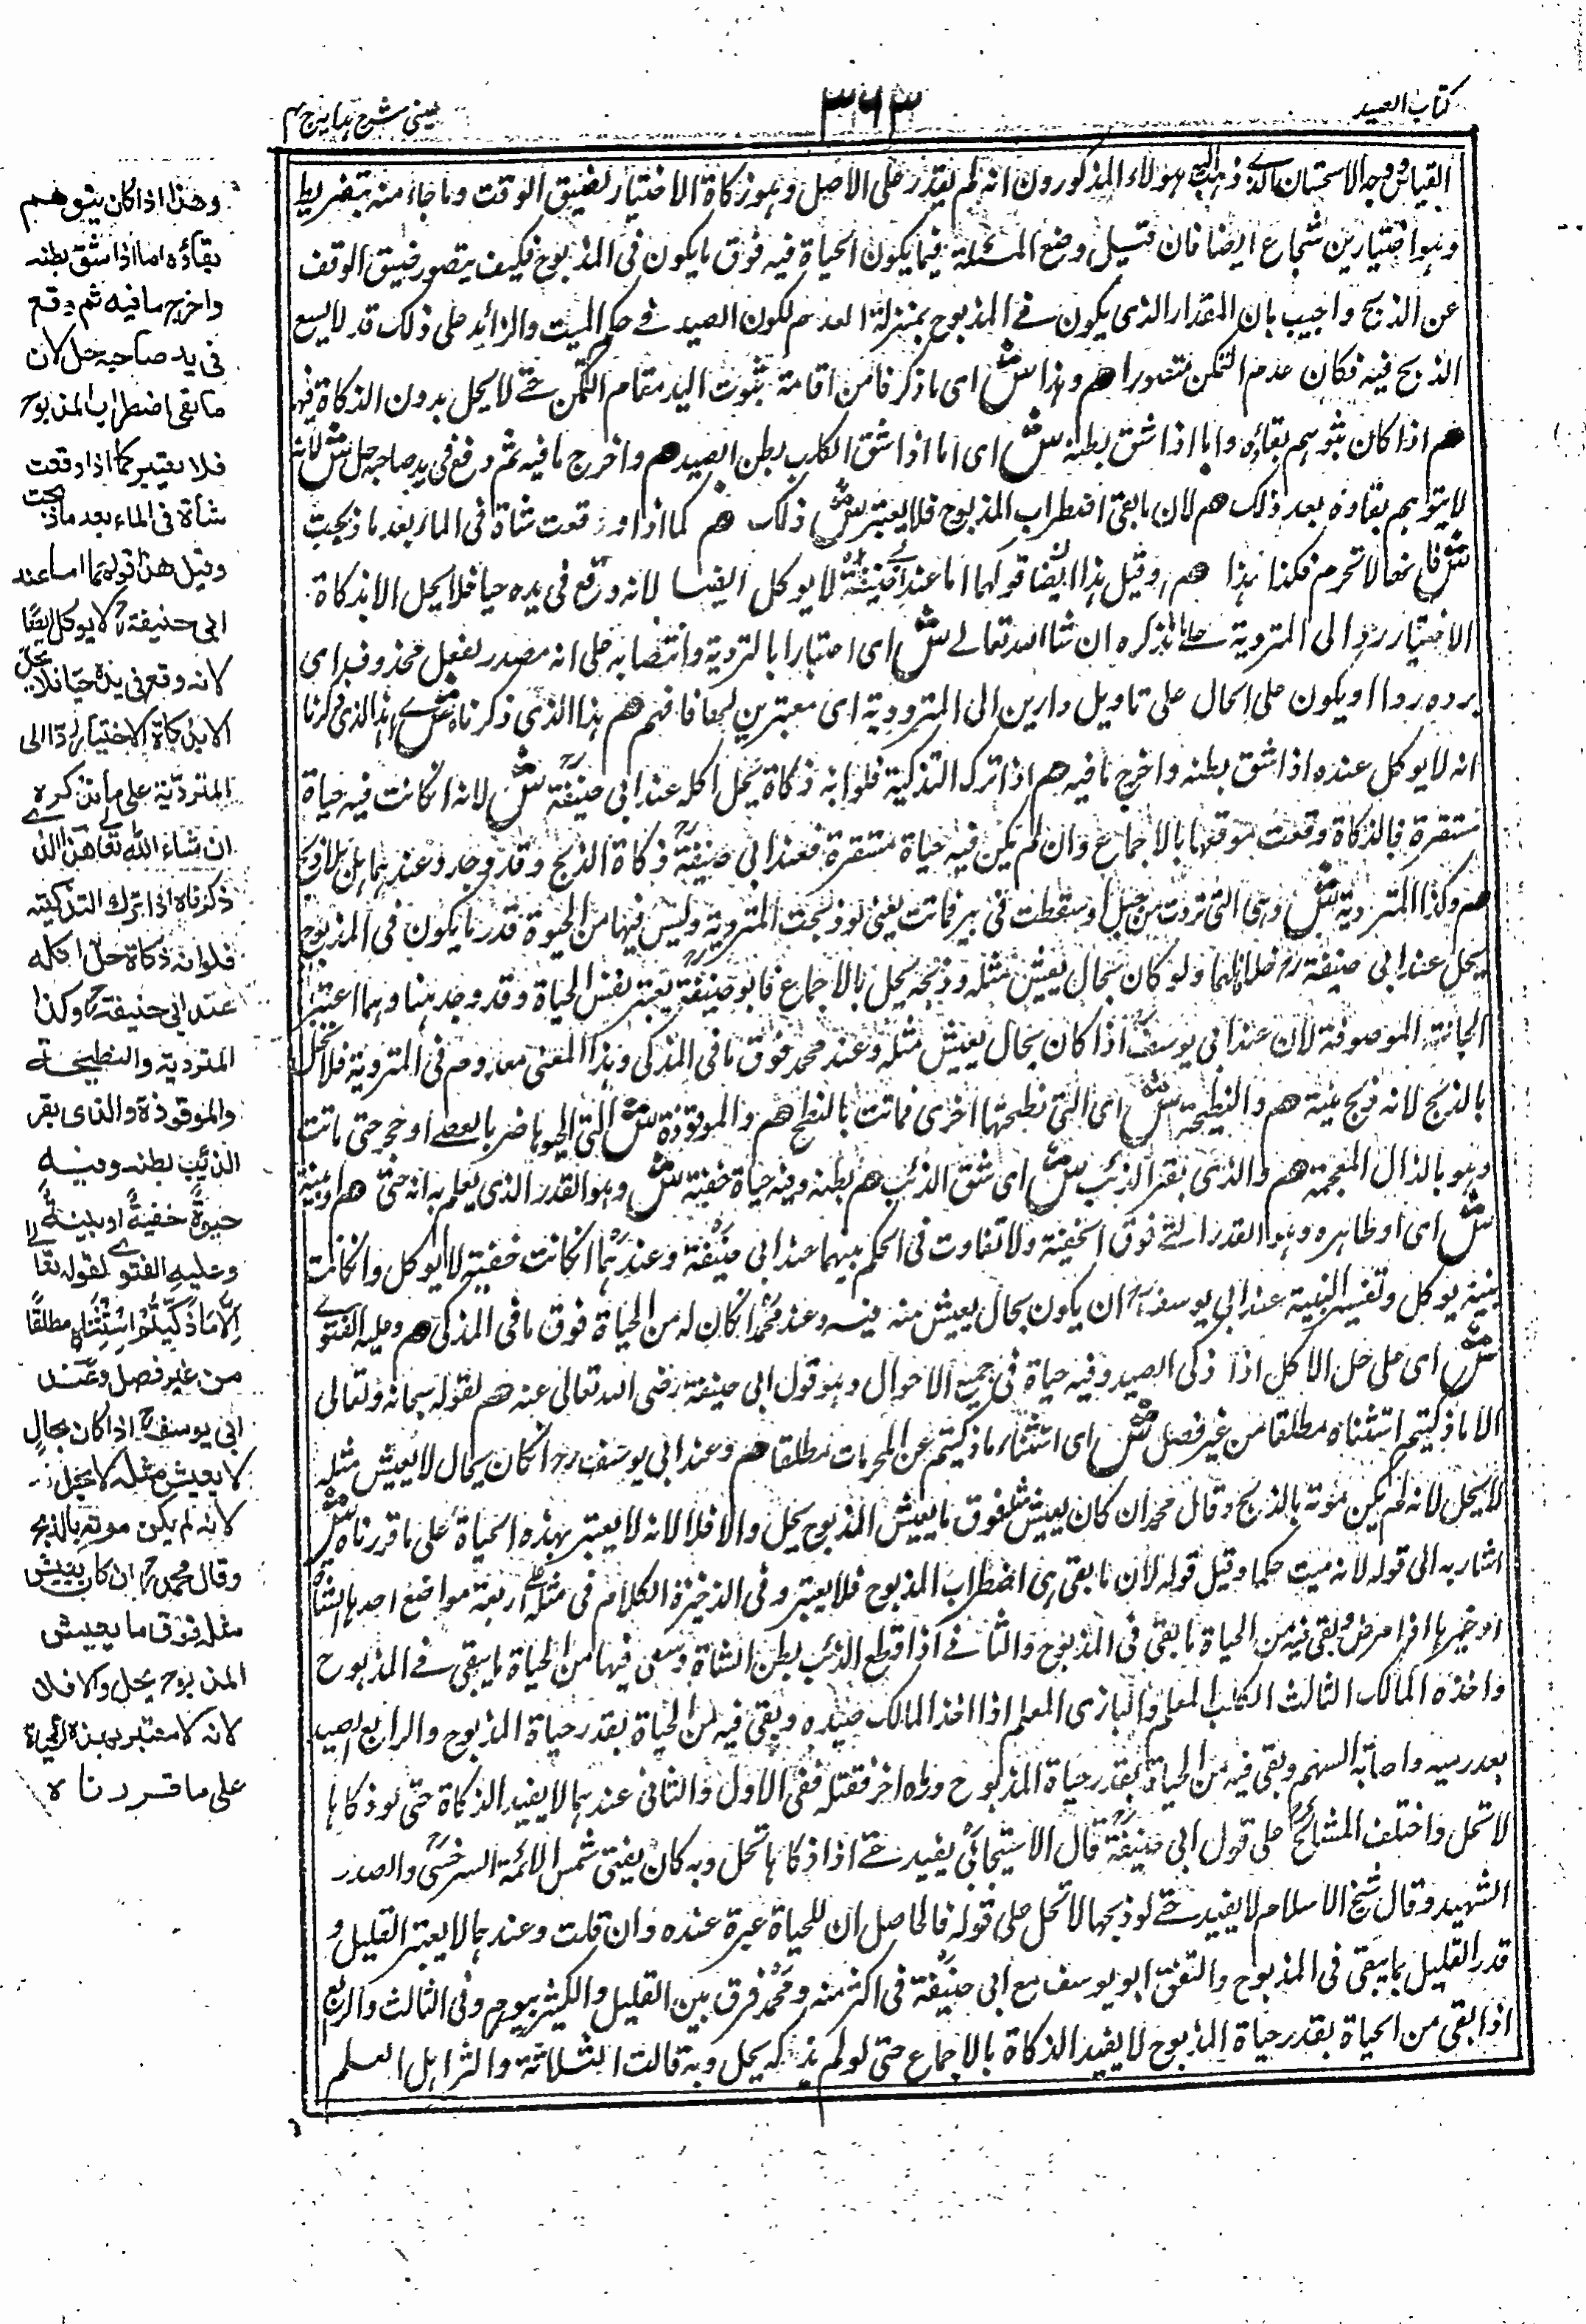 كتاب الصيد
٣٦٣
عينى شرح هدايه ج ٤
القياس وجه الاستحسان الذى ذهب اليه هولاء المذكورون انه لم يقدر على الاصل وهو زكاة الاختيار لضيق الوقت وما جاء منه بتفريط
وهو اختيار بن شجاع ايضا فان قيل وضع المسئلة فيما يكون الحياة فيه فوق ما يكون فى المذبوح فكيف يتصور ضيق الوقف
عن الذبح واجيب بان المقدار الذى يكون فى المذبوح بمنزلة العدم لكون الصيد فى حكم الميت والزائد على ذلك قد لا يسع
الذبح فيه فكان عدم التمكن متصورا هم وهذا ش اى ما ذكرنا من اقامة ثبوت اليد مقام التمكن حتى لا يحل بدون الذكاة فيها
هم اذا كان يتوهم بقاؤه واما اذا شق بطنه ش اى اما اذا شق الكلب بطن الصيد هم واخرج ما فيه ثم وقع فى يد صاحبه حل ش لانه
لا يتوهم بقاؤه بعد ذلك هم لان ما بقى اضطراب المذبوح فلا يعتبر ش ذلك هم كما اذا وقعت شاة فى الماء بعد ما ذبحت
ش فانها لا تحرم فكذا هذا هم وقيل هذا ايضا قولهما اما عند ابى حنيفة لا يوكل ايضا لانه وقع فى يده حيا فلا يحل الا بذكاة
الاختيار ردا الى المتردية على ما نذكره ان شا الله تعالى ش اى اعتبارا بالتردية وانتصابه على انه مصدر لفعل محذوف اى
يرده ردا او يكون على الحال على تاويل دارين الى المتردية اى معتبرين لها فافهم هم هذا الذى ذكرناه ش اى هذا الذى ذكرنا
انه لا يوكل عنده اذا شق بطنه واخرج ما فيه هم اذا ترك التذكية فلو انه ذكاة يحل اكله عند ابى حنيفة ش لانه ان كانت فيه حياة
مستقرة فالذكاة وقعت موقعها بالاجماع وان لم يكن فيه حياة مستقرة فعند ابى حنيفة ذكاة الذبح وقد وجد وعندهما يحل بلا ذبح
هم وكذا المتردية ش وهى التى تردت من جبل او سقطت فى بير فماتت يعنى لو ذبحت المتردية وليس فيها من الحيوة قدر ما يكون فى المذبوح
يحل عند ابى حنيفة رح خلافا لهما ولو كان بحال يعيش مثله وذبحه يحل بالاجماع فابو حنيفة يعتبر نفس الحياة وقد وجد هنا وهما اعتبرا
الحياة الموصوفة لان عند ابى يوسف اذا كان بحال يعيش مثله وعند محمد فوق ما فى المذكى وهذا المعنى معدوم فى المتردية فلا تحل
بالذبح لانه ذبح ميتة هم والنطيحة ش اى التى نطحتها اخرى فماتت بالنطح هم والموقوذة ش التى الحيوها ضربا بالعصا او حجر حتى ماتت
وهو بالذال المعجمة هم والذى بقر الذئب ش اى شق الذئب هم بطنه وفيه حياة خفية ش وهو القدر الذى يعلم به انه حى هم او بينة
ش اى او ظاهره وهو القدر التى فوق الخفية ولا تفاوت فى الحكم بينهما عند ابى حنيفة وعندهما ان كانت خفية لا يوكل وان كانت
بينة يوكل وتفسير البينة عند ابى يوسف ان يكون بحال يعيش منه فيه وعند محمد ان كان له من الحياة فوق ما فى المذكى هم وعليه الفتوى
ش اى على حل الاكل اذا ذكى الصيد وفيه حياة فى جميع الاحوال وهو قول ابى حنيفة رضى الله تعالى عنه هم لقوله سبحانه وتعالى
الا ما ذكيتم استثناه مطلقا من غير فصل ش اى استثناء ما ذكيتم عن المحرمات مطلقا هم وعند ابى يوسف رح ان كان بحال لا يعيش مثله
لا يحل لانه لم يكن موته بالذبح وقال محمد ان كان يعيش مثله فوق ما يعيش المذبوح يحل والا فلا لانه لا يعتبر بهذه الحياة على ما قررناه ش
اشار به الى قوله لانه ميت حكما وقيل قوله لان ما بقى هى اضطراب المذبوح فلا يعتبر وفى الذخيرة الكلام فى مثله اربعة مواضع احدها الشاة
او غيرها اذا مرض وبقى فيه من الحياة ما بقى فى المذبوح والثانى اذا قطع الذئب بطن الشاة وبقى فيها من الحياة ما يبقى فى المذبوح
واخذه المالك الثالث الكلب المعلم والبازى المعلم اذا اخذ المالك صيده وبقى فيه من الحياة بقدر حياة المذبوح والرابع الصيد
بعد رميه واصابة السهم وبقى فيه من الحياة بقدر حياة المذبوح ورماه اخر فقتله ففى الاول والثانى عندهما لا يفيد الذكاة حتى لو ذكاها
لا تحل واختلف المشايخ على قول ابى حنيفة قال الاسبيجابى يفيد حتى اذا ذكاها تحل وبه كان يفتى شمس الائمة السرخسى والصدر
الشهيد وقال شيخ الاسلام لا يفيد حتى لو ذبحها لا تحل على قوله فالحاصل ان للحياة عبرة عنده وان قلت وعندهما لا يعتبر القليل و
قدر القليل بما يبقى فى المذبوح واتفق ابو يوسف مع ابى حنيفة فى اكثر منه ومحمد فرق بين القليل والكثير بيوم وفى الثالث والرابع
اذا بقى من الحياة بقدر حياة المذبوح لا يفيد الذكاة بالاجماع حتى لو لم يذكه يحل وبه قالت الثلاثة واكثر اهل العلم
وهذا اذا كان يتوهم
بقاؤه اما اذا شق بطنه
واخرج ما فيه ثم وقع
فى يد صاحبه حل لان
ما بقى اضطراب المذبوح
فلا يعتبر كما اذا وقعت
شاة فى الماء بعد ما ذبحت
وقيل هذا قولهما اما عند
ابى حنيفة رح لا يوكل ايضا
لانه وقع فى يده حيا فلا يحل
الا بذكاة الاختيار ردا الى
المتردية على ما نذكره
ان شاء الله تعالى هذا الذى
ذكرناه اذا ترك التذكية
فلو انه ذكاة حل اكله
عند ابى حنيفة رح وكذا
المتردية والنطيحة
والموقوذة والذى بقر
الذئب بطنه وفيه
حيوة خفية او بينة
وعليه الفتوى لقوله تعالى
الا ما ذكيتم استثناه مطلقا
من غير فصل وعند
ابى يوسف رح اذا كان بحال
لا يعيش مثله لا يحل
لانه لم يكن موته بالذبح
وقال محمد رح ان كان يعيش
مثله فوق ما يعيش
المذبوح يحل والا فلا
لانه لا معتبر بهذه الحياة
على ما قررناه